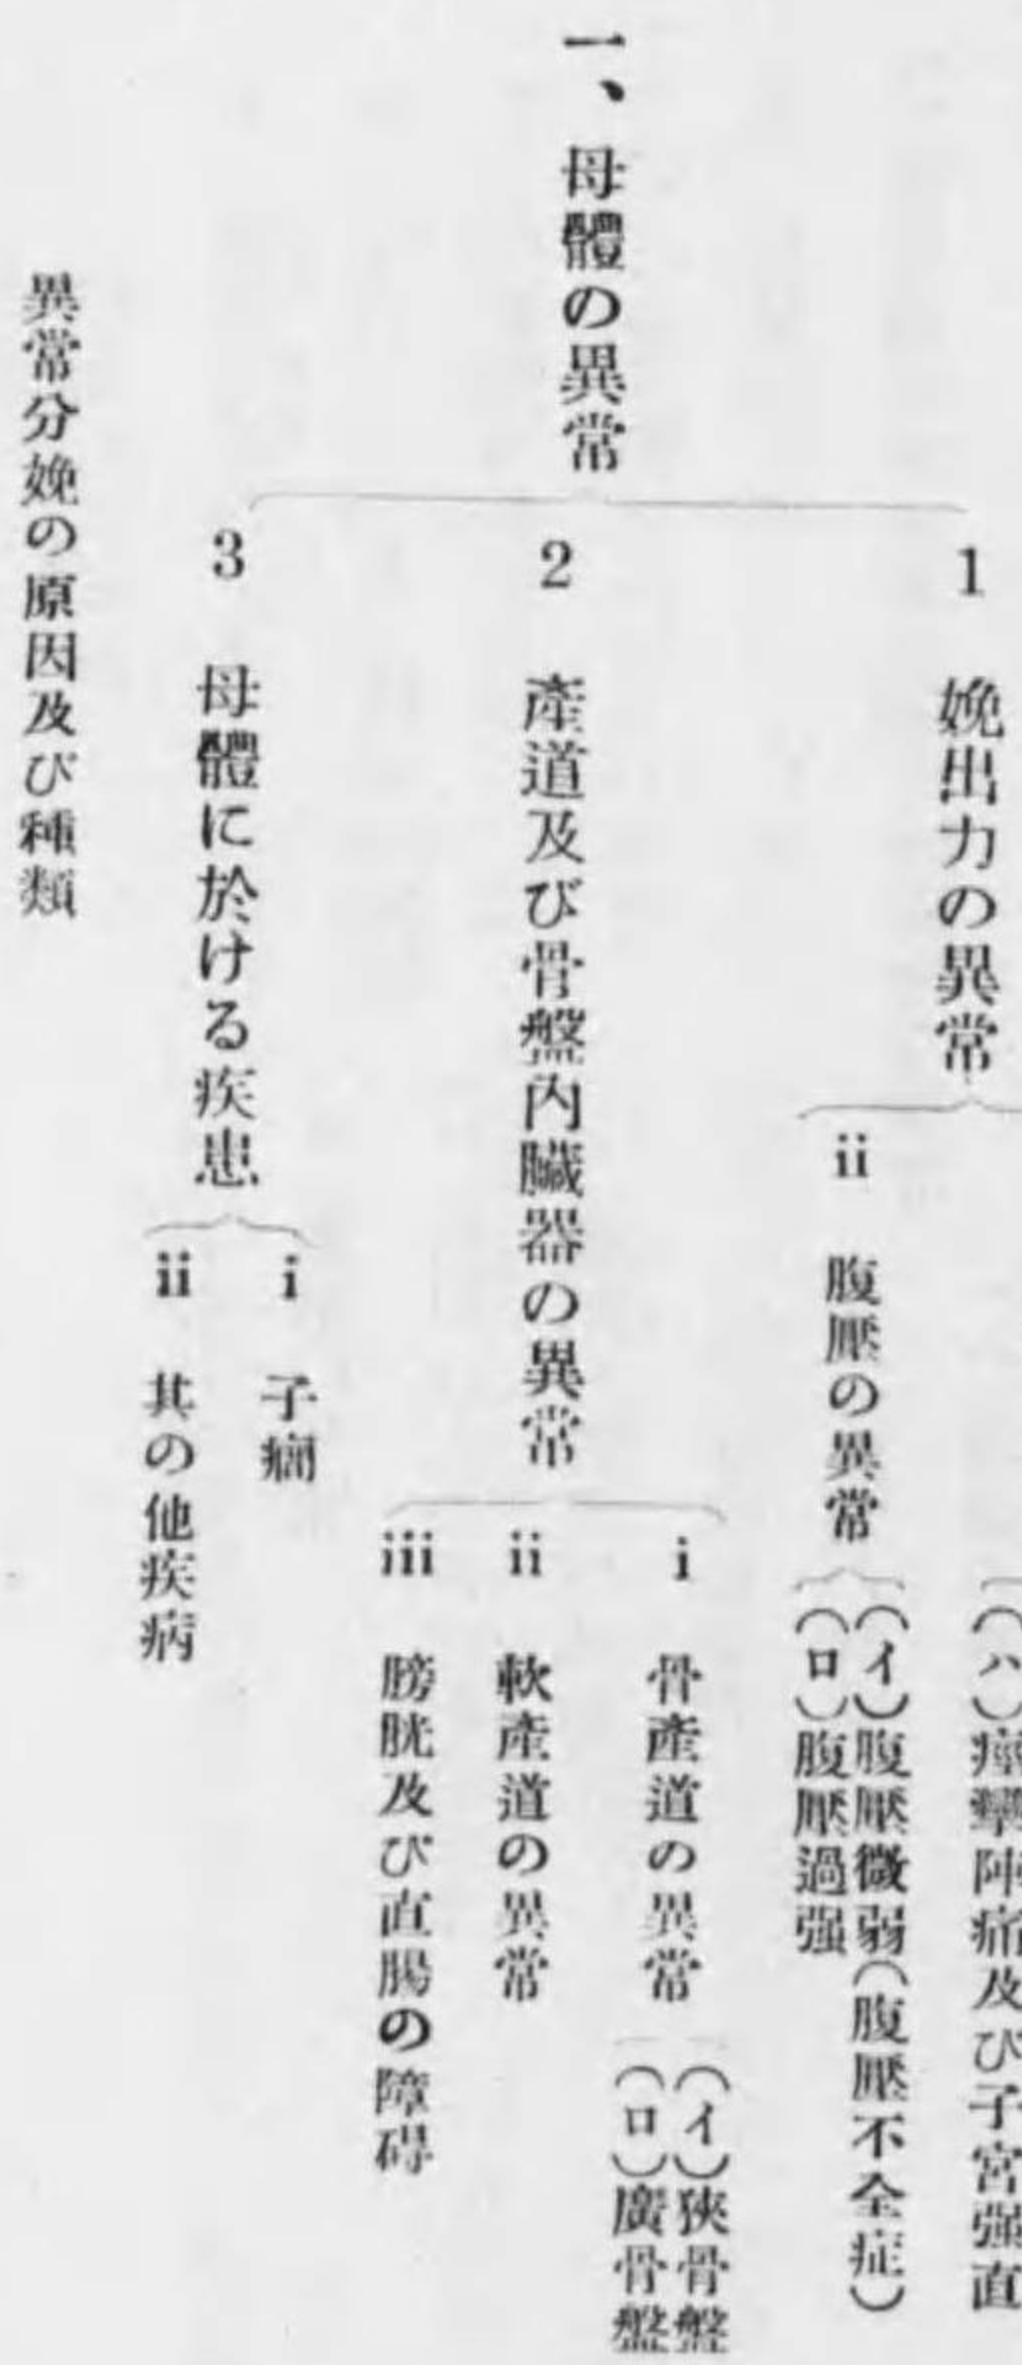 一、母體の異常
1 娩出力の異常
(ハ)痙攣陣痛及び子宮强直
ii 腹壓の異常
(イ)腹壓微弱(腹壓不全症)
(ロ)腹壓過强
2 產道及び骨盤內臟器の異常
i 骨產道の異常
(イ)狹骨盤
(ロ)廣骨盤
ii 軟產道の異常
iii 膀胱及び直腸の障碍
3 母體に於ける疾患
i 子癇
ii 其の他疾病
異常分娩の原因及び種類